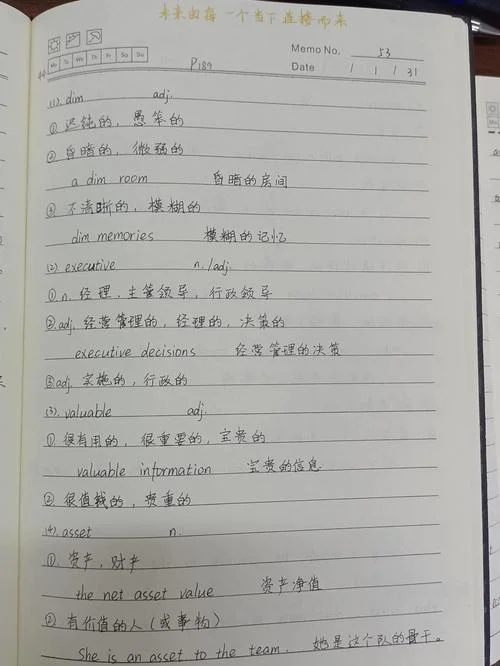 未来由每一个当下连接而来
Memo No. 53
Mo Tu We Th Fr Sa Su
P189
Date 1 / 1 / 31
(1). dim adj.
① 迟钝的，愚笨的
② 昏暗的，微弱的
a dim room 昏暗的房间
③ 不清晰的，模糊的
dim memories 模糊的记忆
(2). executive n. /adj.
① n. 经理，主管领导，行政领导
② adj. 经营管理的，经理的，决策的
executive decisions 经营管理的决策
③ adj. 实施的，行政的
(3). valuable adj.
① 很有用的，很重要的，宝贵的
valuable information 宝贵的信息
② 很值钱的，贵重的
(4). asset n.
①. 资产，财产
the net asset value 资产净值
② 有价值的人（或事物）
She is an asset to the team. 她是这个队的骨干。